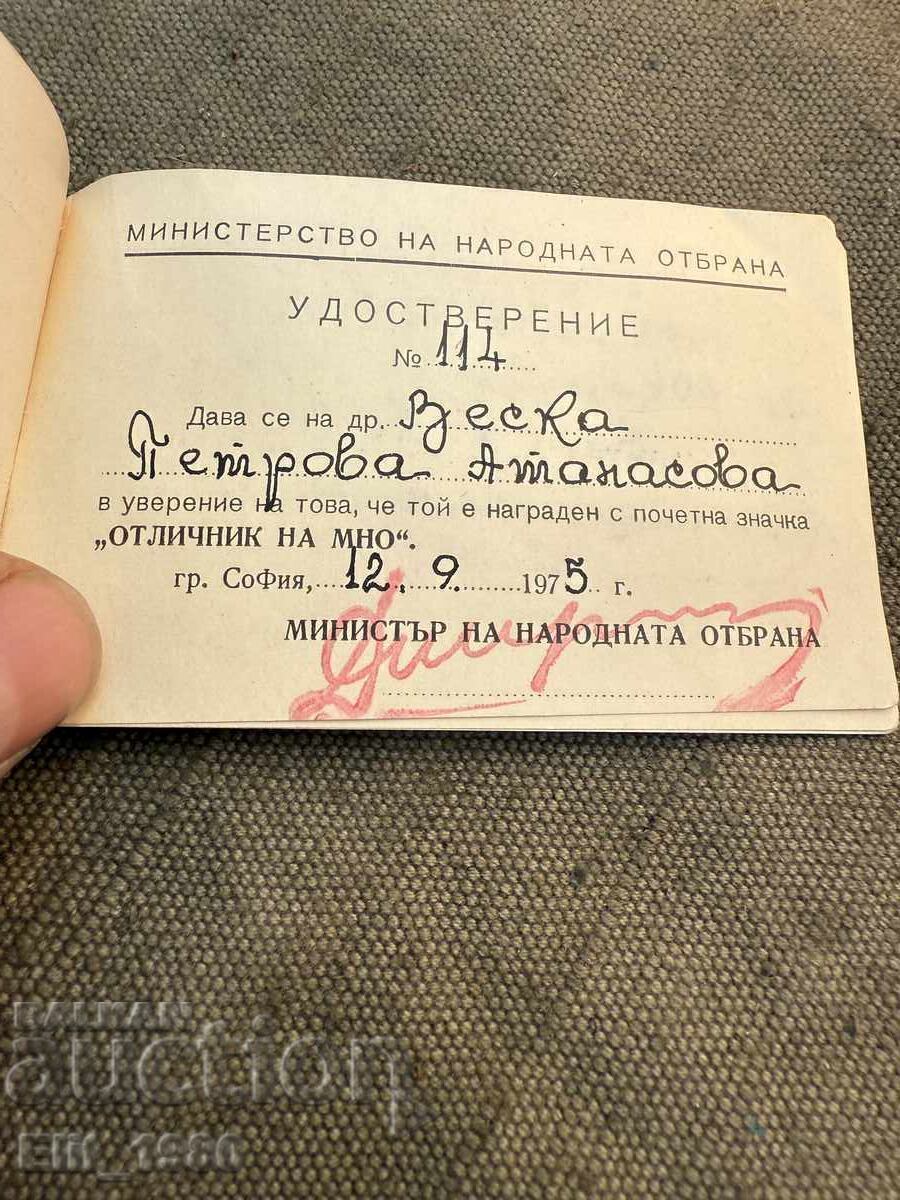 МИНИСТЕРСТВО НА НАРОДНАТА ОТБРАНА
УДОСТВЕРЕНИЕ
№ 114
Дава се на др. Веска
Петрова Атанасова
в уверение на това, че той е награден с почетна значка
„ОТЛИЧНИК НА МНО“.
гр. София, 12. 9. 1975 г.
МИНИСТЪР НА НАРОДНАТА ОТБРАНА
BALKAN
auction
Elii_1980